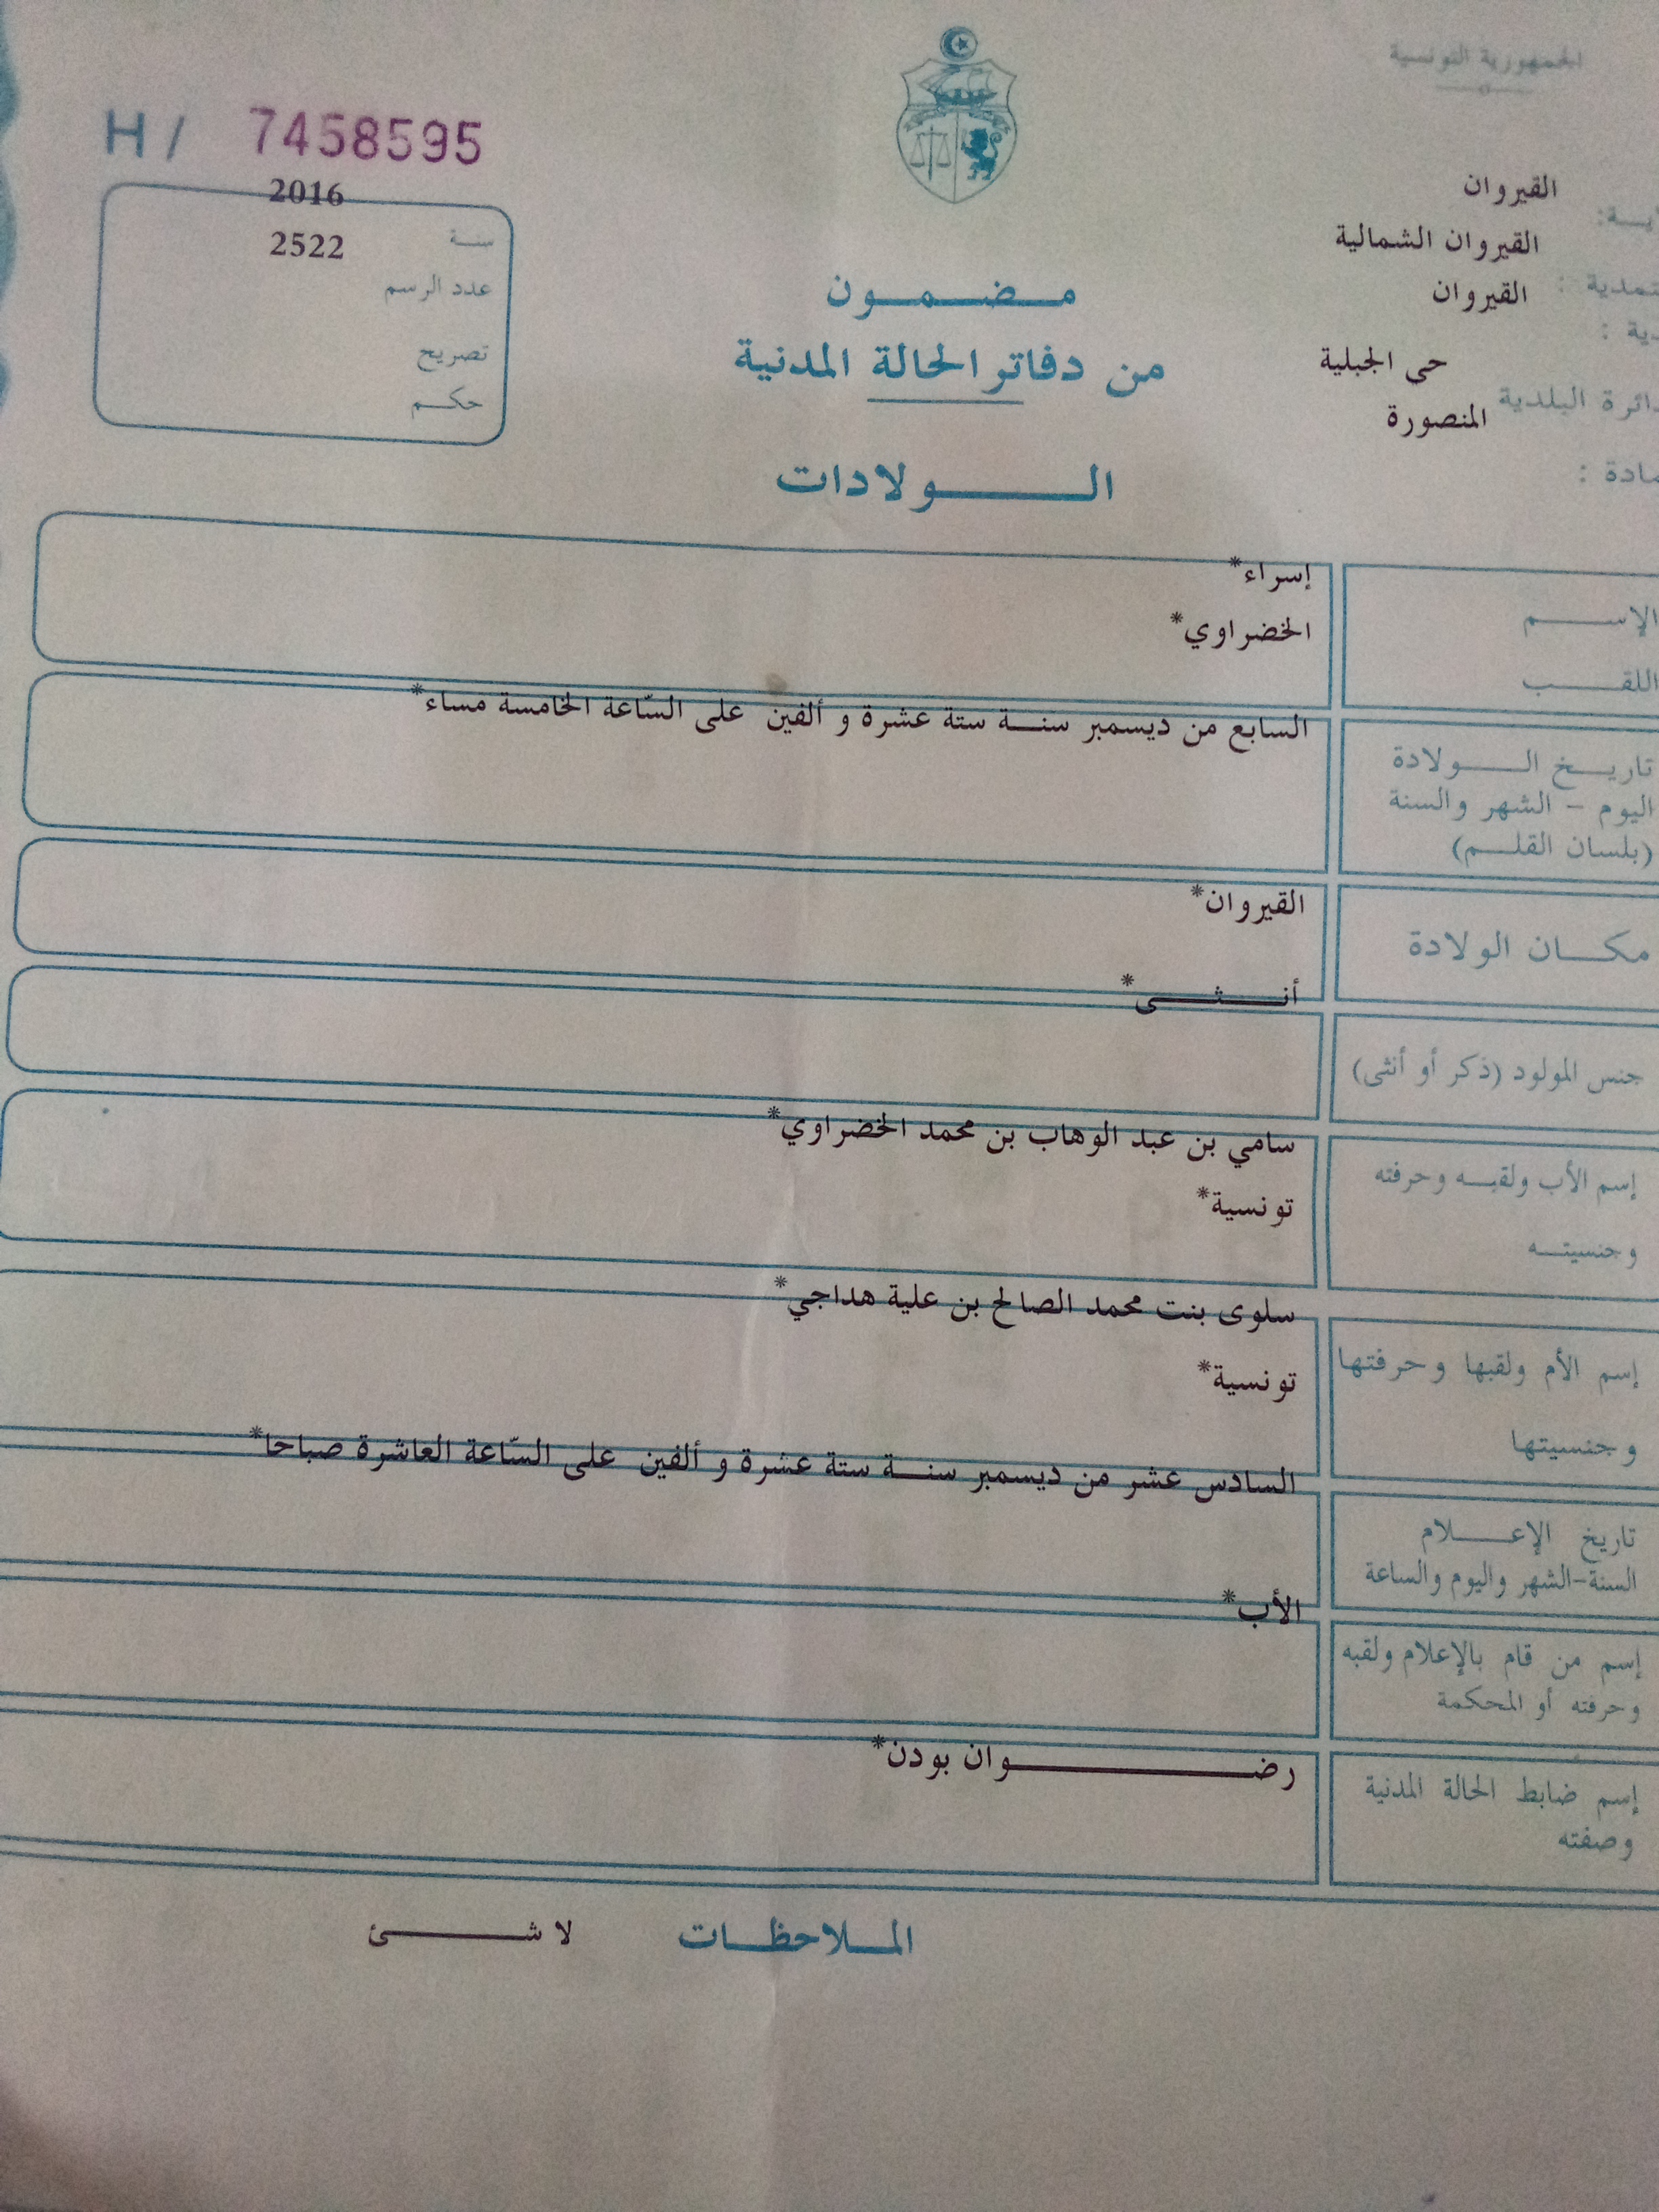 الجمهورية التونسية
H / 7458595
القيروان
القيروان الشمالية
القيروان
حى الجبلية
دائرة البلدية
المنصورة
2016
سنة
2522
عدد الرسم
تصريح
حكم
مضمون
من دفاتر الحالة المدنية
الولادات
الإسم
إسراء*
اللقب
الخضراوي*
تاريخ الولادة
اليوم - الشهر والسنة
(بلسان القلم)
السابع من ديسمبر سنة ستة عشرة و ألفين على السّاعة الخامسة مساء*
مكان الولادة
القيروان*
جنس المولود (ذكر أو أنثى)
أنثى*
إسم الأب ولقبه وحرفته
وجنسيته
سامي بن عبد الوهاب بن محمد الخضراوي*
تونسية*
إسم الأم ولقبها وحرفتها
وجنسيتها
سلوى بنت محمد الصالح بن علية هداجي*
تونسية*
تاريخ الإعلام
السنة-الشهر واليوم والساعة
السادس عشر من ديسمبر سنة ستة عشرة و ألفين على السّاعة العاشرة صباحا*
إسم من قام بالإعلام ولقبه
وحرفته أو المحكمة
الأب*
إسم ضابط الحالة المدنية
وصفته
رضوان بودن*
الملاحظات لا شئ